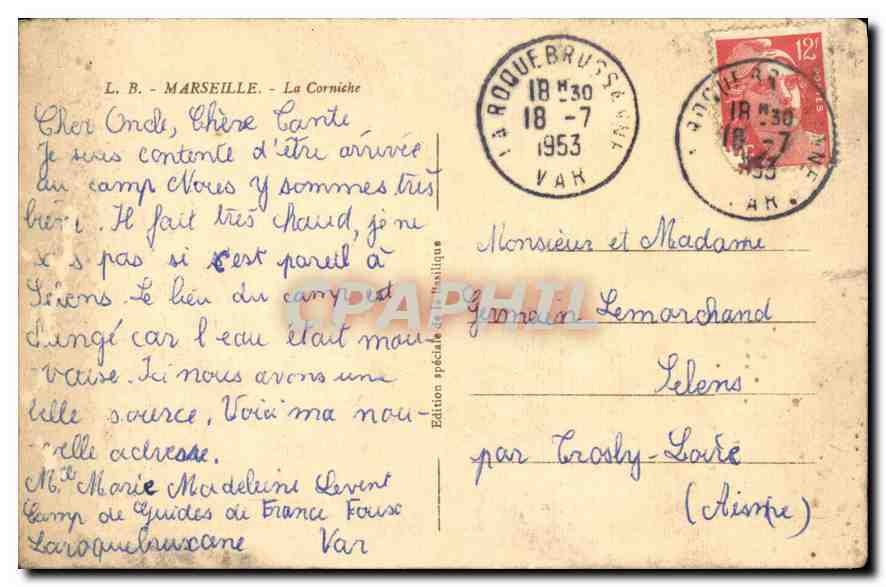 L. B. - MARSEILLE. - La Corniche
Cher Oncle, Chère Tante
Je suis contente d'être arrivée
au camp Nous y sommes très
bien. Il fait très chaud, je ne
s s pas si c'est pareil à
Selens. Le lieu du camp est
changé car l'eau était mau-
vaise. Ici nous avons une
belle source. Voici ma nou-
velle adresse.
Mlle Marie Madeleine Levent
Camp de Guides de France
Laroquebruxane Var
Edition spéciale de la Basilique
LA ROQUEBRUSSANNE
18 H 30
18 -7
1953
VAR
12F
POSTES
ROQUEBR ANNE
18 H 30
18 -7
1953
VAR
Monsieur et Madame
Germain Lemarchand
Selens
par Trosly-Loire
(Aisne)
CPAPHIL